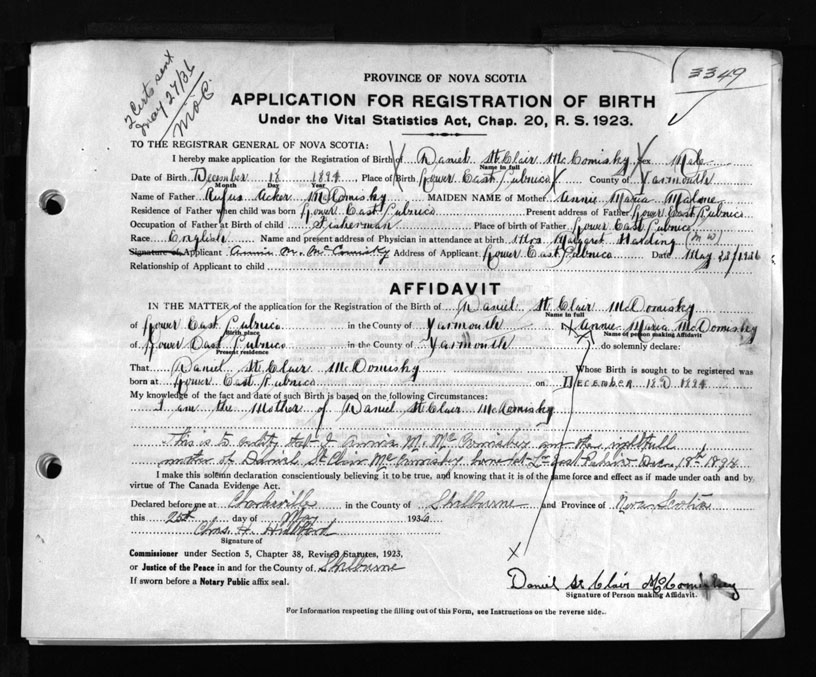 2 Certs sent
May 27/36
3349
PROVINCE OF NOVA SCOTIA
APPLICATION FOR REGISTRATION OF BIRTH
Under the Vital Statistics Act, Chap. 20, R. S. 1923.
TO THE REGISTRAR GENERAL OF NOVA SCOTIA:
I hereby make application for the Registration of Birth of Daniel St Clair McComisky Sex Male
Name in full
Date of Birth December 18 1894 Place of Birth Lower East Pubnico County of Yarmouth
Month Day Year
Name of Father Rufus Acker McComisky MAIDEN NAME of Mother Annie Maria Malone
Residence of Father when child was born Lower East Pubnico Present address of Father Lower East Pubnico
Occupation of Father at Birth of child Fisherman Place of birth of Father Lower East Pubnico
Race English Name and present address of Physician in attendance at birth Mrs Margaret Harding (M W)
Signature of Applicant Annie M. McComisky Address of Applicant Lower East Pubnico Date May 23/1936
Relationship of Applicant to child
AFFIDAVIT
IN THE MATTER of the application for the Registration of the Birth of Daniel St Clair McComisky
Name in full
of Lower East Pubnico in the County of Yarmouth I, Annie Maria McComisky
Birth place Name of person making Affidavit
of Lower East Pubnico in the County of Yarmouth do solemnly declare:
Present residence
That Daniel St Clair McComisky Whose Birth is sought to be registered was
born at Lower East Pubnico on December 18th 1894
My knowledge of the fact and date of such Birth is based on the following Circumstances:
I am the Mother of Daniel St Clair McComisky
This is to certify that I Annie M. McComiskey am the rightfull
mother of Daniel St Clair McComiskey born at Lr East Pubnico Decem 18th 1894
I make this solemn declaration conscientiously believing it to be true, and knowing that it is of the same force and effect as if made under oath and by
virtue of The Canada Evidence Act.
Declared before me at Clarksville in the County of Shelburne and Province of Nova Scotia
this 25th day of May 1936
Chas. H.
Signature of
Commissioner under Section 5, Chapter 38, Revised Statutes, 1923,
or Justice of the Peace in and for the County of Shelburne
If sworn before a Notary Public affix seal.
X
Daniel St Clair McComiskey
Signature of Person making Affidavit.
For Information respecting the filling out of this Form, see Instructions on the reverse side.